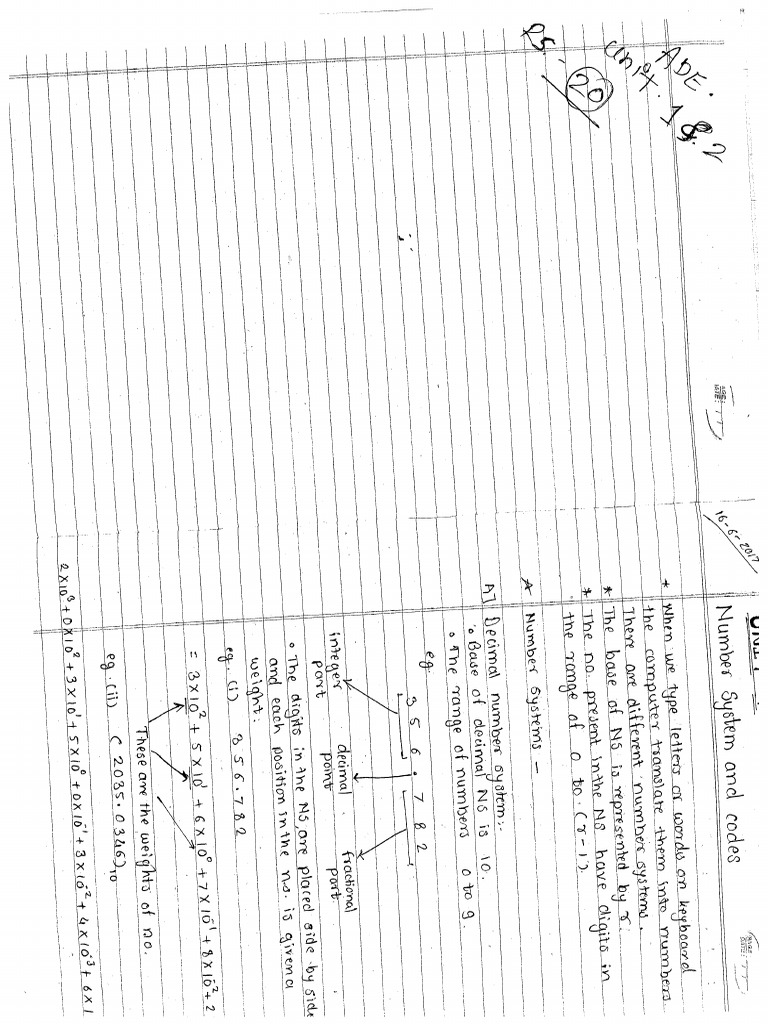 ADE.
Unit. 1 & 2
25.
20
16-6-2017
Number System and codes
* When we type letters or words on keyboard
the computer translate them into numbers
There are different number systems.
* The base of NS is represented by r.
* The no. present in the NS have digits in
the range of 0 to (r-1).
* Number Systems -
A] Decimal number system:-
• Base of decimal NS is 10.
• The range of numbers 0 to 9.
eg. 3 5 6 . 7 8 2
integer part
decimal point
fractional part
• The digits in the NS, are placed side by side
and each position in the ns. is given a
weight.
eg. (i) 356.782
= 3×10² + 5×10¹ + 6×10⁰ + 7×10⁻¹ + 8×10⁻² + 2
These are the weights of no.
eg. (ii) (2035.0346)₁₀
2×10³ + 0×10² + 3×10¹ + 5×10⁰ + 0×10⁻¹ + 3×10⁻² + 4×10⁻³ + 6×1